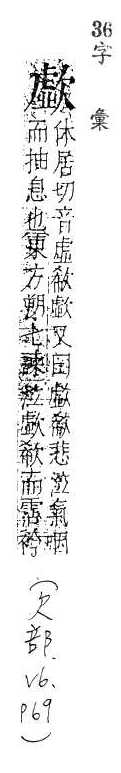 36
字彙
歔
休居切音虛欷歔又曰歔欷悲泣氣咽
而抽息也東方朔七諫泣歔欷而霑衿
(欠部. v6. p69)